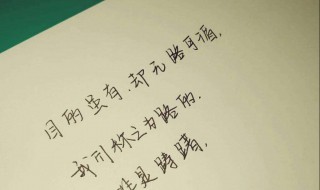 目的虽有,却无路可循,
我们称之为路的.
是踌躇,